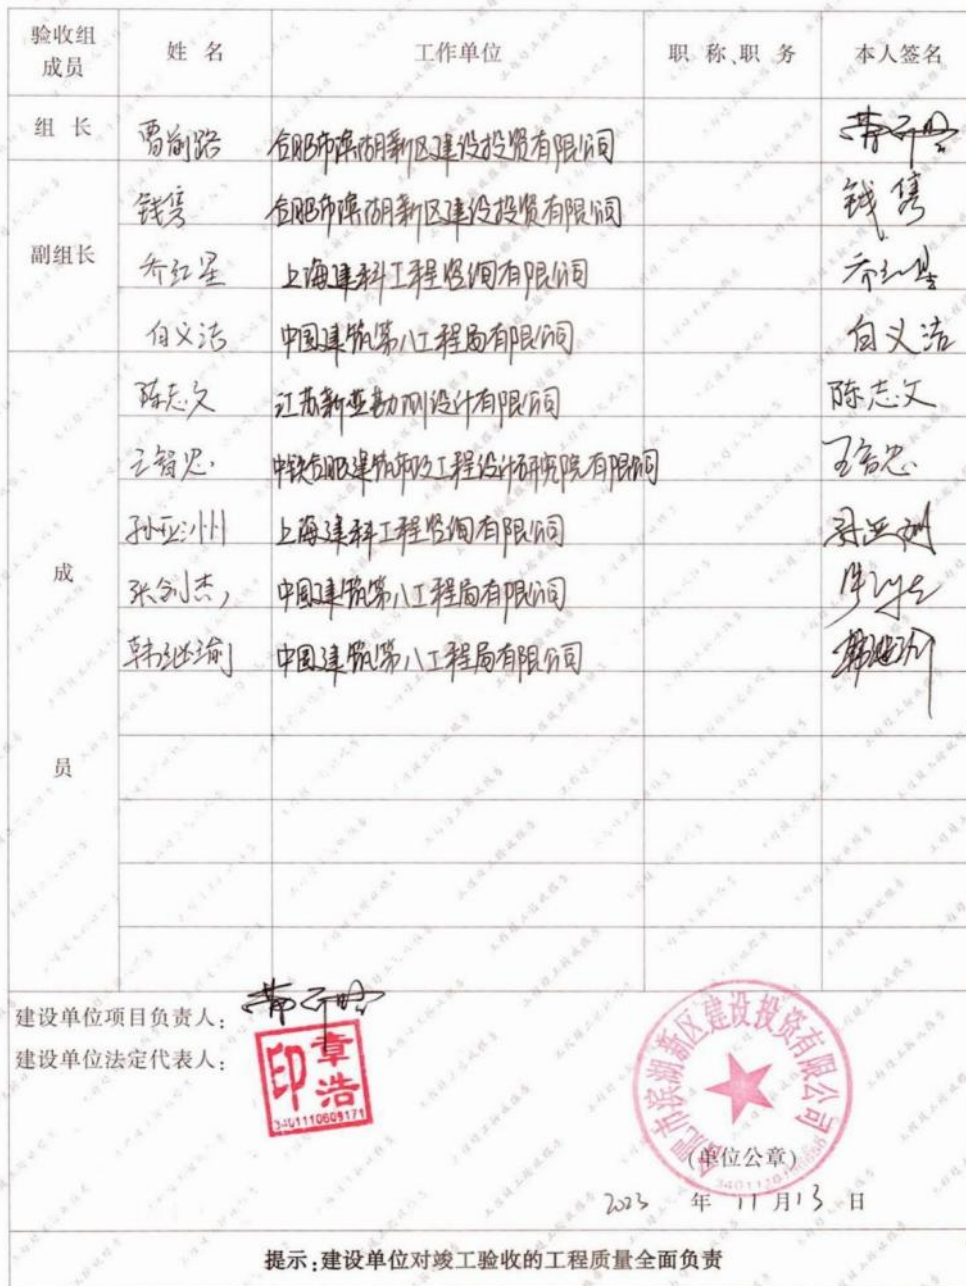 验收组成员 姓 名 工作单位 职 称、职 务 本人签名
组 长 曹前路 合肥市滨湖新区建设投资有限公司
副组长 钱隽 合肥市滨湖新区建设投资有限公司 钱隽
乔红星 上海建科工程咨询有限公司 乔红星
白义洁 中国建筑第八工程局有限公司 白义洁
成员 陈志文 江苏新亚勘测设计有限公司 陈志文
王智忠 中铁合肥建筑市政工程设计研究院有限公司 王智忠
孙亚洲 上海建科工程咨询有限公司 孙亚洲
张剑杰 中国建筑第八工程局有限公司
韩继渝 中国建筑第八工程局有限公司
建设单位项目负责人:
建设单位法定代表人:
章浩印
3401110609171
合肥市滨湖新区建设投资有限公司
(单位公章)
2023 年 11 月 13 日
提示:建设单位对竣工验收的工程质量全面负责